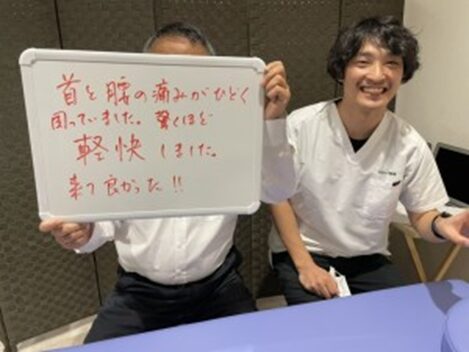 首と腰の痛みがひどく
困っていました。驚くほど
軽快しました。
来て良かった!!